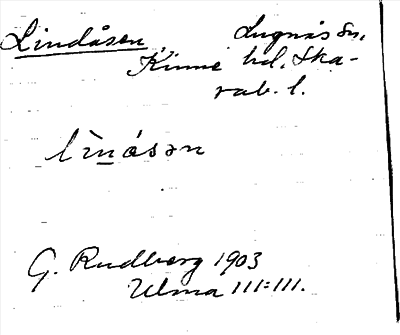 Lindåsen, Lugnås sn,
Kinne hd. Ska-
rab. l.
lìnåsən
G. Rudberg 1903
Ulma 111:111.